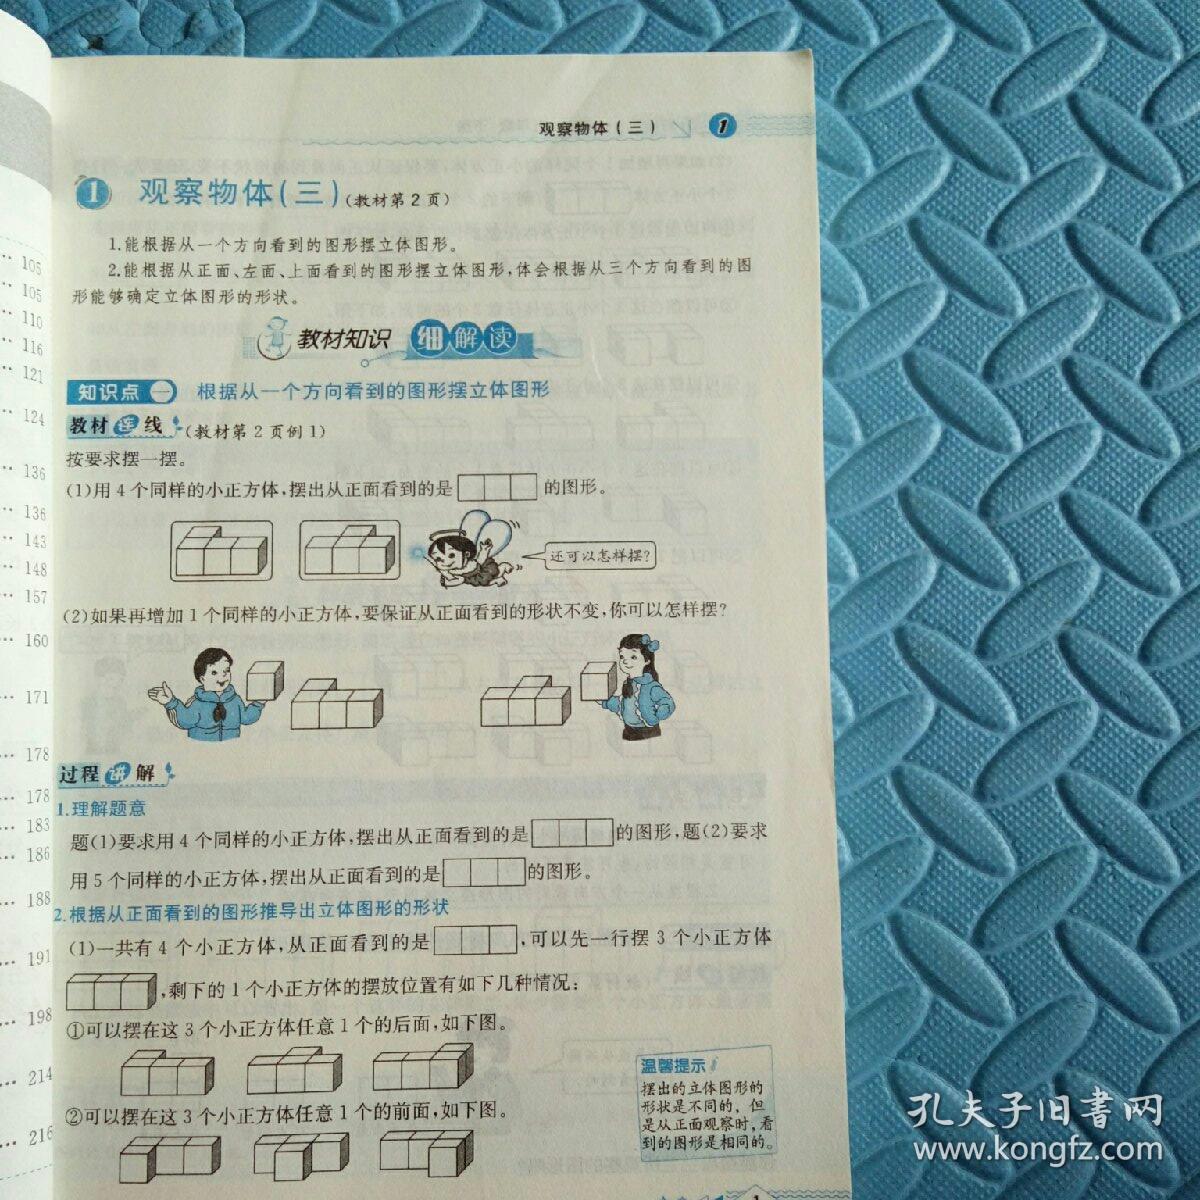 观察物体(三) 1
1 观察物体(三)(教材第2页)
1.能根据从一个方向看到的图形摆立体图形。
2.能根据从正面、左面、上面看到的图形摆立体图形,体会根据从三个方向看到的图
形能够确定立体图形的形状。
教材知识 细解读
知识点一 根据从一个方向看到的图形摆立体图形
教材连线(教材第2页例1)
按要求摆一摆。
(1)用4个同样的小正方体,摆出从正面看到的是 的图形。
还可以怎样摆?
(2)如果再增加1个同样的小正方体,要保证从正面看到的形状不变,你可以怎样摆?
过程讲解
1.理解题意
题(1)要求用4个同样的小正方体,摆出从正面看到的是 的图形,题(2)要求
用5个同样的小正方体,摆出从正面看到的是 的图形。
2.根据从正面看到的图形推导出立体图形的形状
(1)一共有4个小正方体,从正面看到的是 ,可以先一行摆3个小正方体
,剩下的1个小正方体的摆放位置有如下几种情况:
①可以摆在这3个小正方体任意1个的后面,如下图。
②可以摆在这3个小正方体任意1个的前面,如下图。
温馨提示
摆出的立体图形的
形状是不同的,但
是从正面观察时,看
到的图形是相同的。
105
105
110
116
121
124
136
136
143
148
157
160
171
178
178
183
186
188
191
198
214
216
孔夫子旧书网
www.kongfz.com